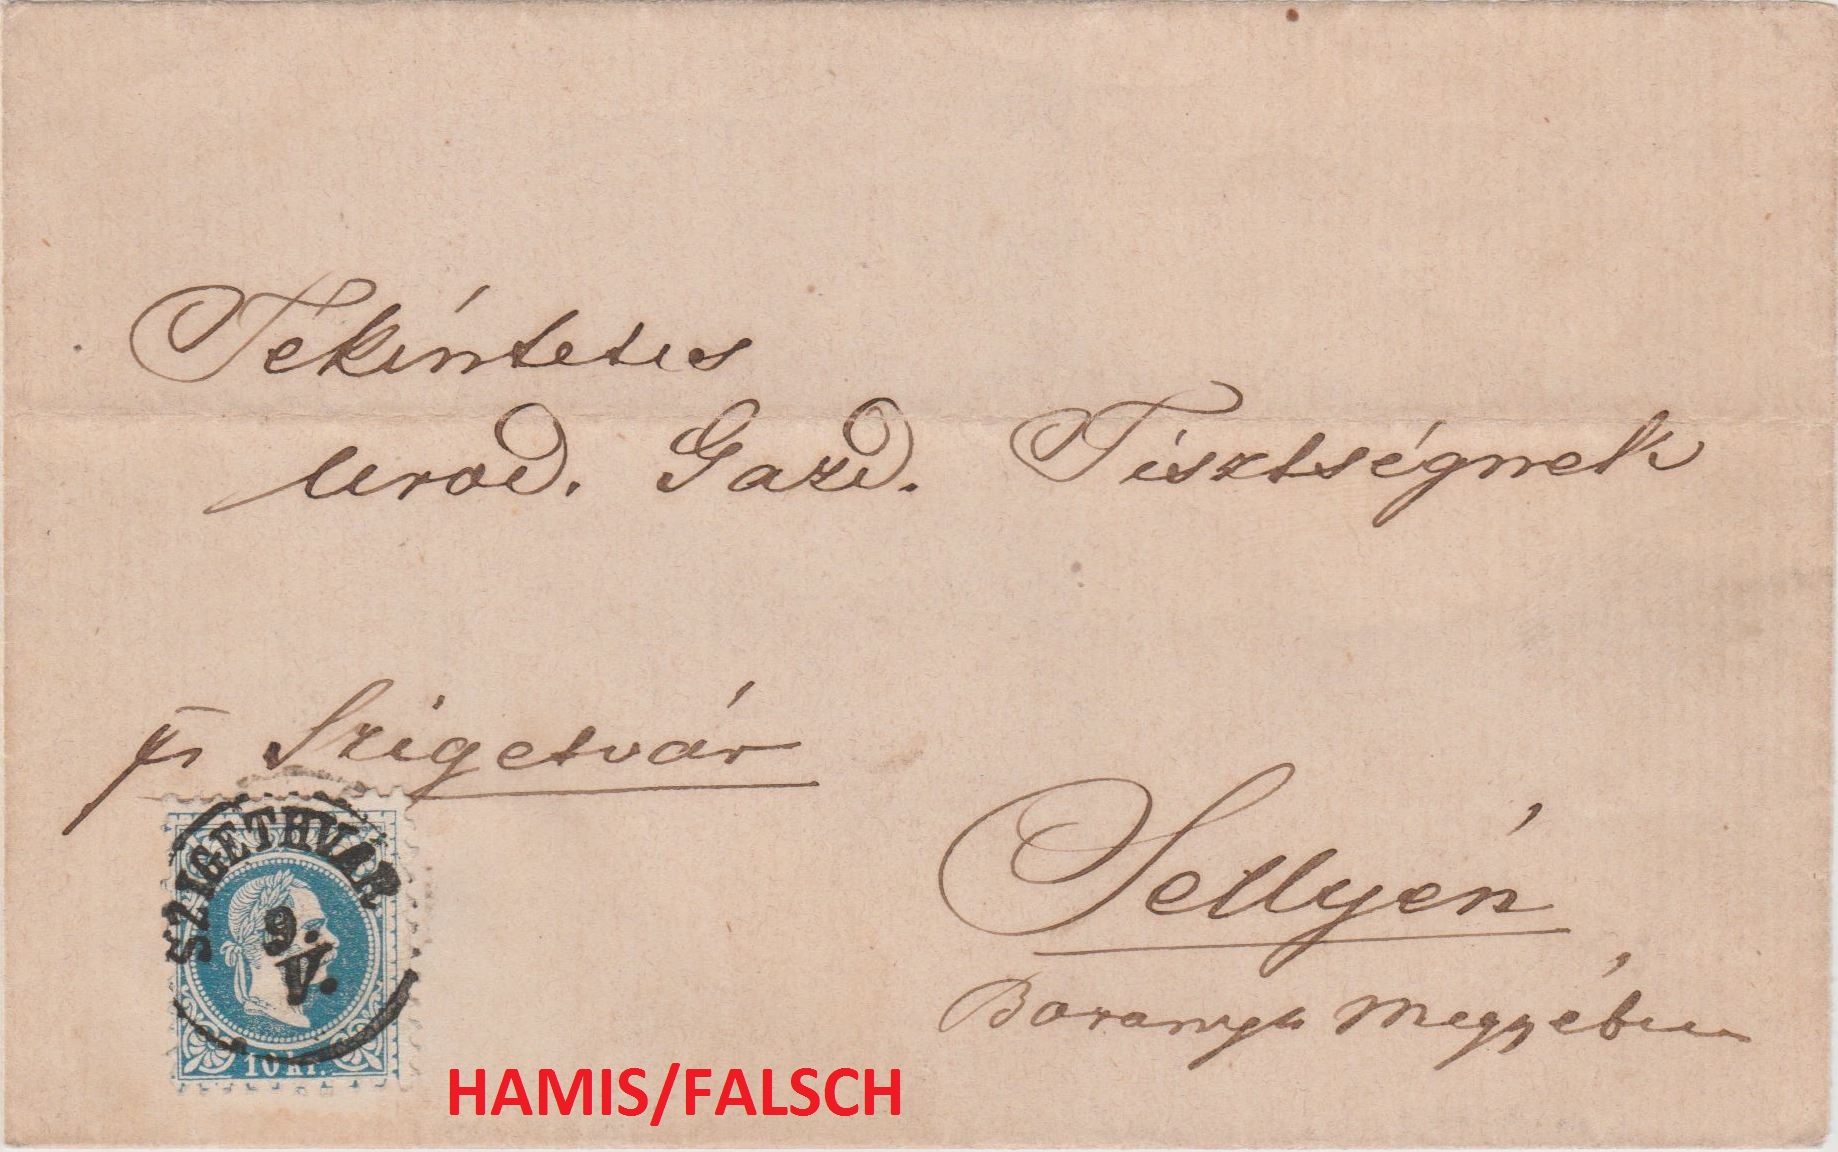 Tekíntetes
Urad. Gazd. Tisztségnek
pr Szigetvár
Sellyén
Baranya Megyében
SZIGETHVÁR
9.
V.
10 kr.
HAMIS/FALSCH